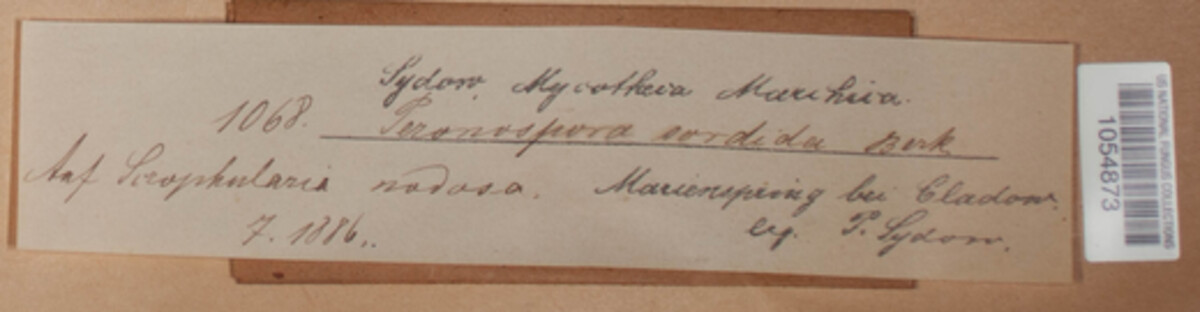 Sydow, Mycotheca Marchica.
1068. Peronospora sordida Berk
Auf Scrophularia nodosa. Marienspring bei Cladow.
7. 1886. leg. P. Sydow.
US NATIONAL FUNGUS COLLECTIONS
1054873